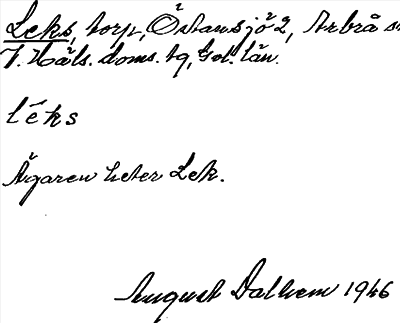 Leks, torp, Östansjö 2, Arbrå s
V. Häls. doms. tg, Gvl. län.
lēks
Ägaren heter Lek.
August Dalhem 1946